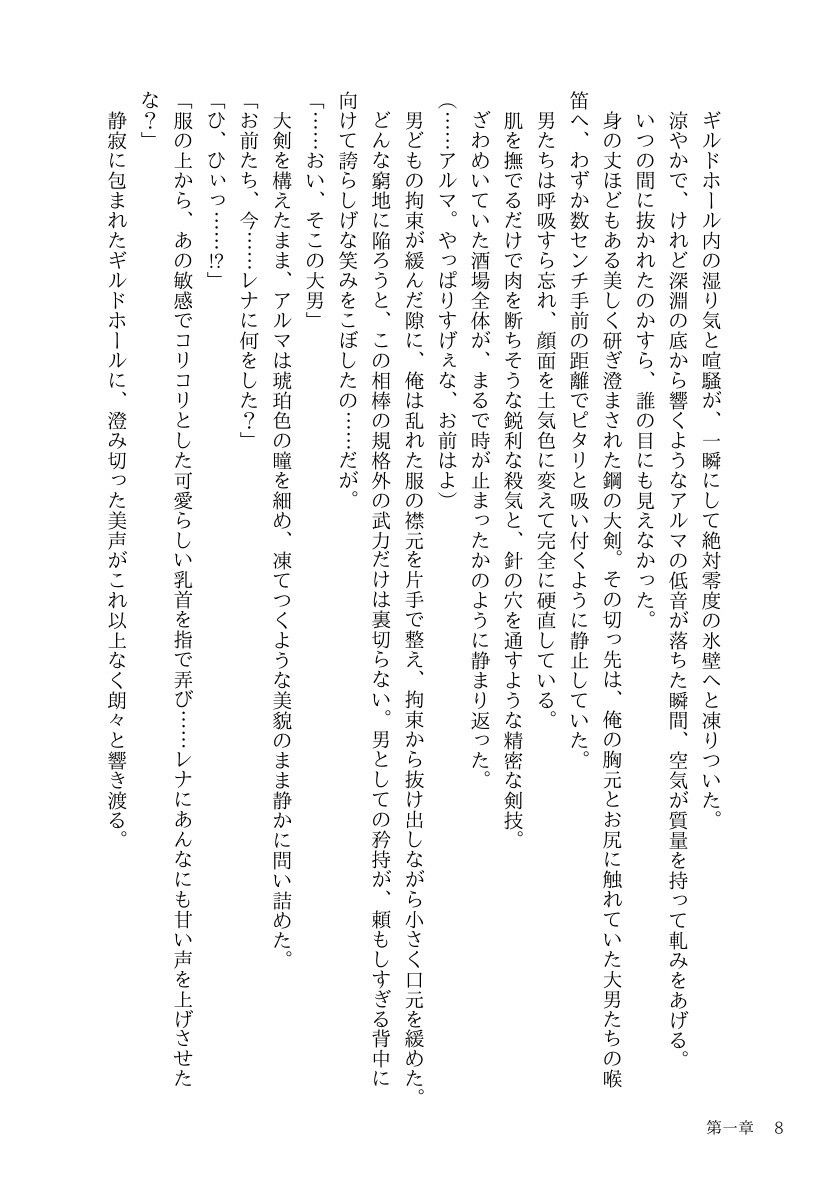 ギルドホール内の湿り気と喧騒が、一瞬にして絶対零度の氷壁へと凍りついた。
涼やかで、けれど深淵の底から響くようなアルマの低音が落ちた瞬間、空気が質量を持って軋みをあげる。
いつの間に抜かれたのかすら、誰の目にも見えなかった。
身の丈ほどもある美しく研ぎ澄まされた鋼の大剣。その切っ先は、俺の胸元とお尻に触れていた大男たちの喉
笛へ、わずか数センチ手前の距離でピタリと吸い付くように静止していた。
男たちは呼吸すら忘れ、顔面を土気色に変えて完全に硬直している。
肌を撫でるだけで肉を断ちそうな鋭利な殺気と、針の穴を通すような精密な剣技。
ざわめいていた酒場全体が、まるで時が止まったかのように静まり返った。
(……アルマ。やっぱりすげぇな、お前はよ)
男どもの拘束が緩んだ隙に、俺は乱れた服の襟元を片手で整え、拘束から抜け出しながら小さく口元を緩めた。
どんな窮地に陥ろうと、この相棒の規格外の武力だけは裏切らない。男としての矜持が、頼もしすぎる背中に
向けて誇らしげな笑みをこぼしたの……だが。
「……おい、そこの大男」
大剣を構えたまま、アルマは琥珀色の瞳を細め、凍てつくような美貌のまま静かに問い詰めた。
「お前たち、今……レナに何をした？」
「ひ、ひぃっ……⁉」
「服の上から、あの敏感でコリコリとした可愛らしい乳首を指で弄び……レナにあんなにも甘い声を上げさせた
な？」
静寂に包まれたギルドホールに、澄み切った美声がこれ以上なく朗々と響き渡る。
第一章 8